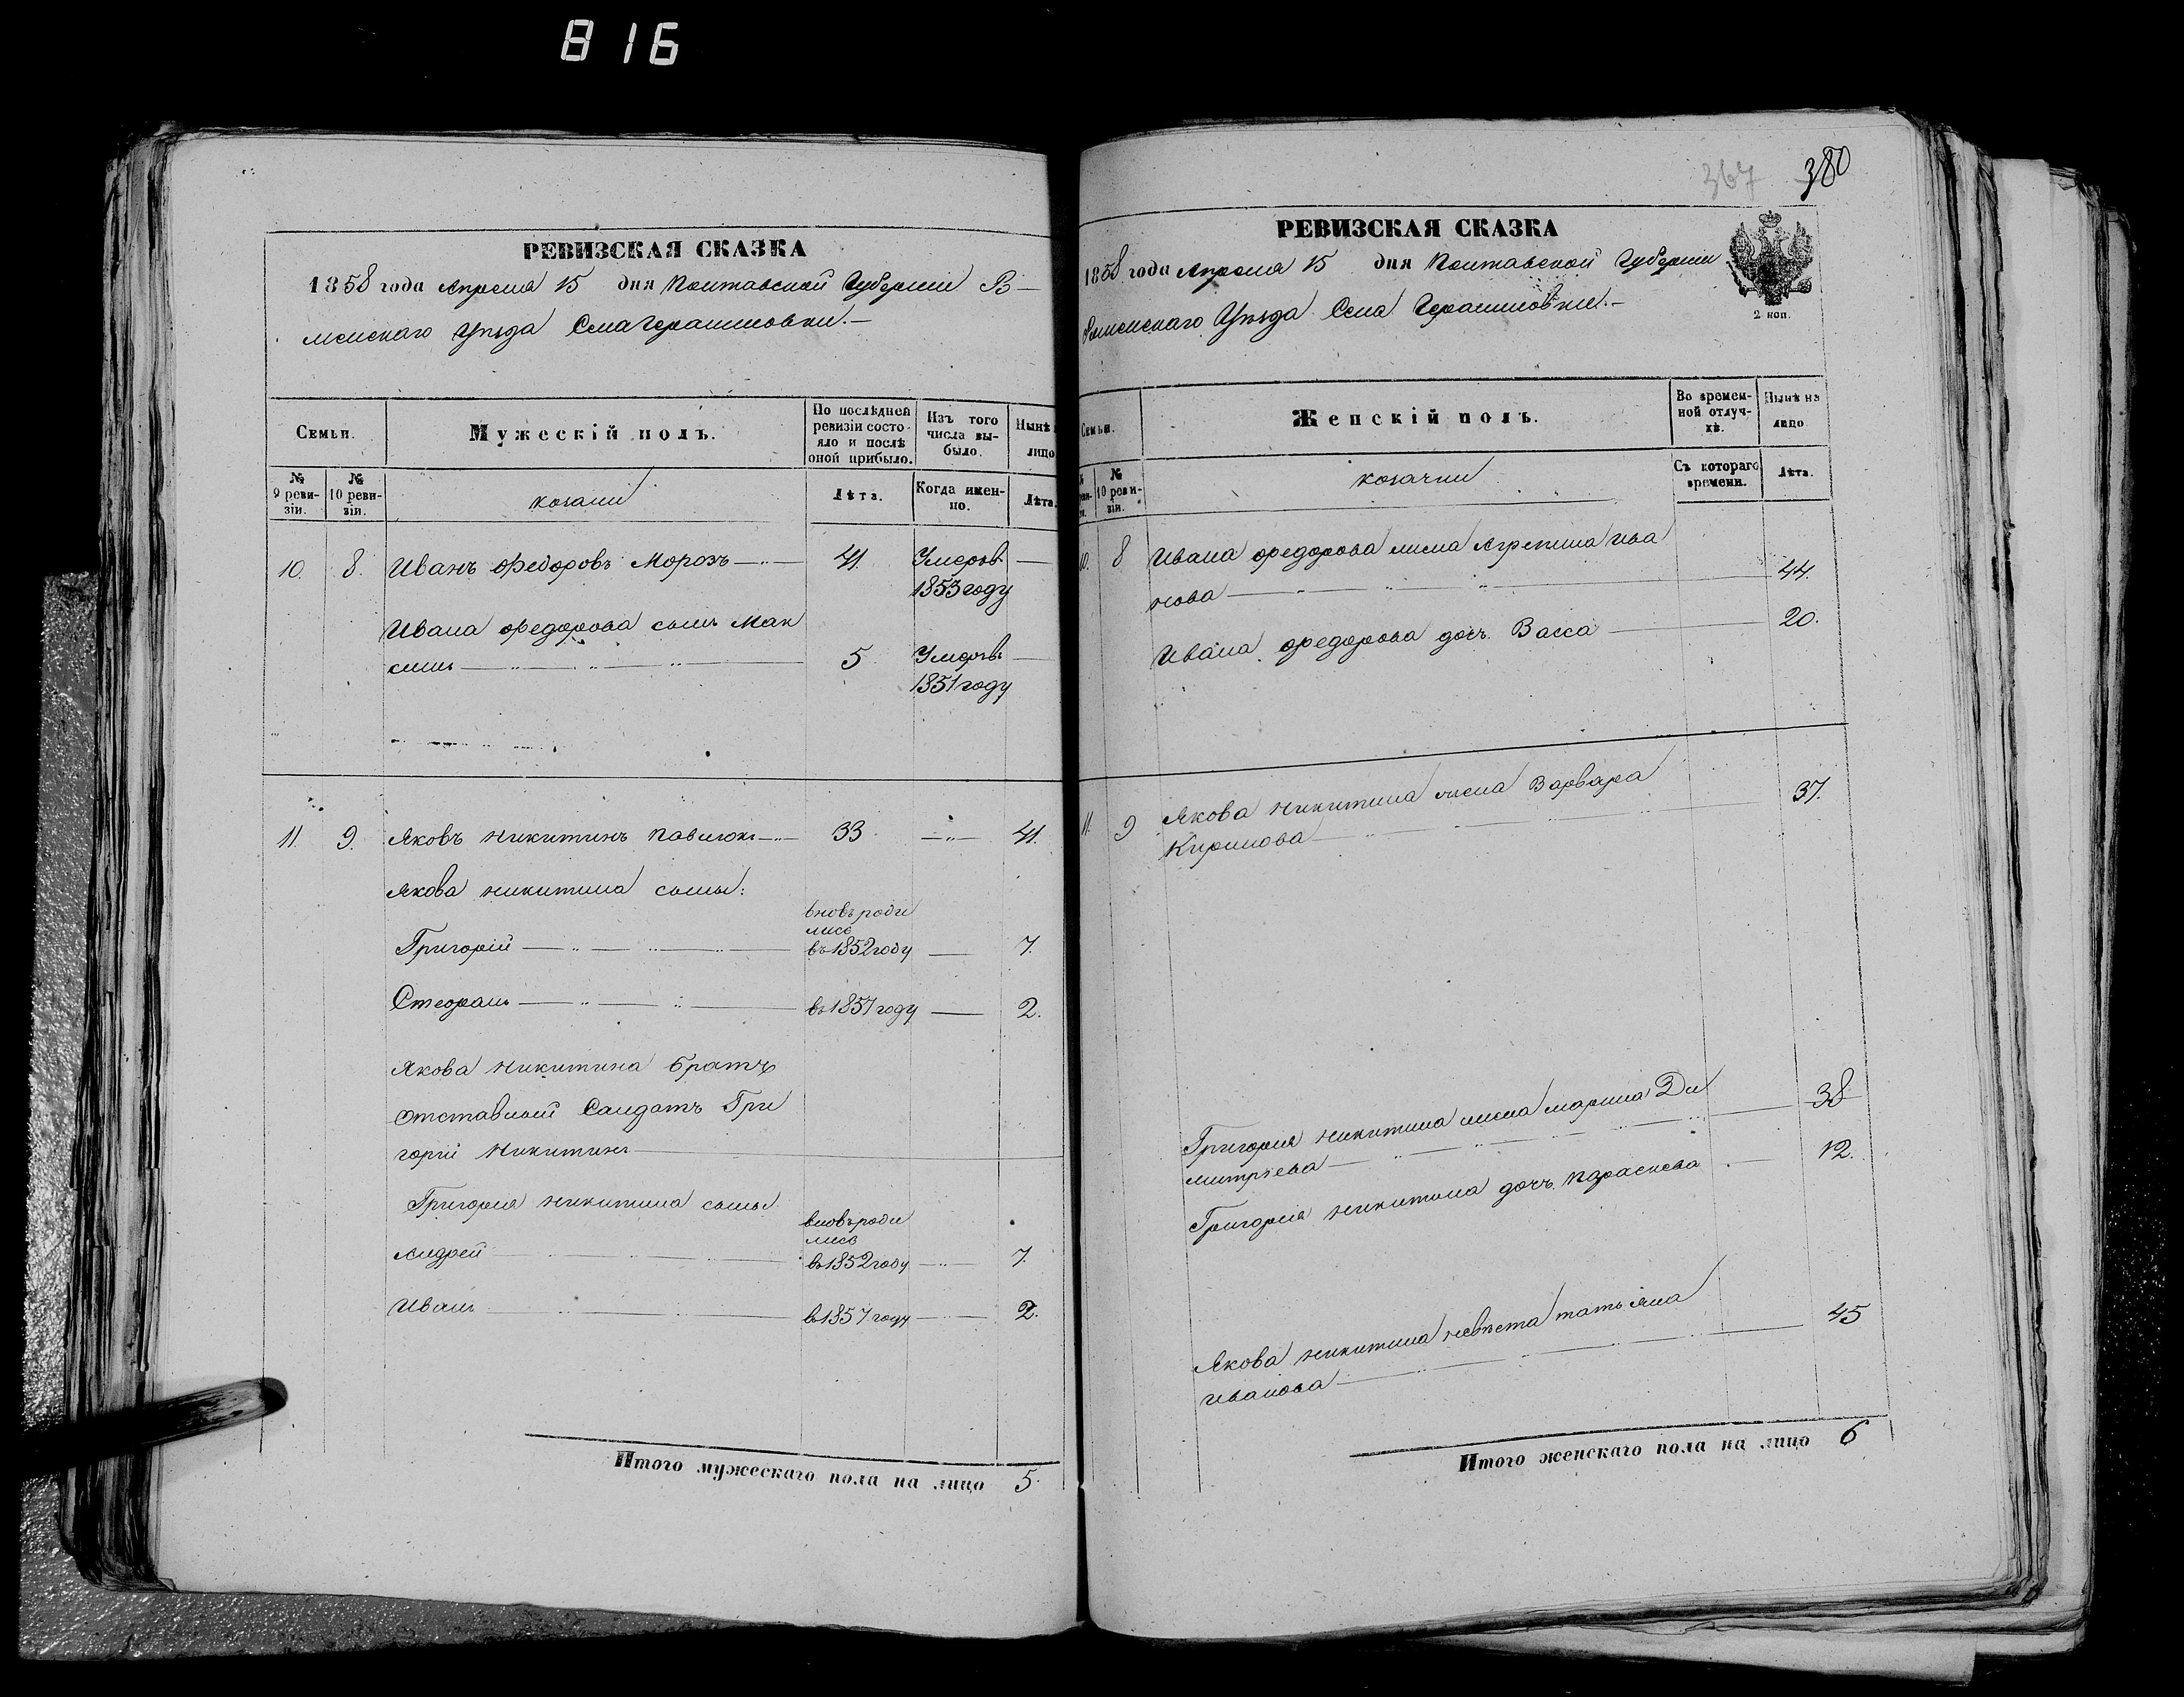 816
РЕВИЗСКАЯ СКАЗКА
1858 года Апреля 15 дня Полтавской Губерніи Р—
менскаго Уѣзда Села Герашиовки.—
Семьи.
Мужескій полъ.
По послѣдней
ревизіи состо-
яло и послѣ
оной прибыло.
Изъ того
числа вы-
было.
Нынѣ
лицо
№
9 реви-
зіи.
№
10 реви-
зіи.
козаки
Лѣта.
Когда имен-
но.
Лѣта.
10. 8. Иванъ Федоровъ Морозъ 41. Умеръ в
1853 году
Ивана Федорова сынъ Мак
симъ 5 Умеръ в
1851 году
11. 9. Яковъ Никитинъ Павлюкъ 33 41.
Якова Никитина сыны:
вновь роди
лись
Григорій въ 1852 году 7.
Стефанъ въ 1857 году 2.
Якова Никитина братъ
отставный Салдатъ Гри
горій Никитинъ
Григорія Никитина сыны
вновь роди
лись
Андрей въ 1852 году 7.
Иванъ въ 1857 году 2.
Итого мужескаго пола на лицо 5.
367 380
РЕВИЗСКАЯ СКАЗКА
1858 года Апреля 15 дня Полтавской Губерніи
Роменскаго Уѣзда Села Герашиовки.—
2 коп.
Семьи.
Женскій полъ.
Во времен-
ной отлуч-
кѣ.
Нынѣ на
лицо
№
10 реви-
зіи.
козачки
Съ котораго
времени.
Лѣта.
10. 8 Ивана Федорова жена Агрепина Ива
нова 44.
Ивана Федорова дочь Васса 20.
11. 9 Якова Никитина жена Варвара
Кирилова 37.
Григорія Никитина жена Марина Ди
митріева 38
Григорія Никитина дочь Параскева 12.
Якова Никитина невѣста Татьяна
Иванова 45
Итого женскаго пола на лицо 6